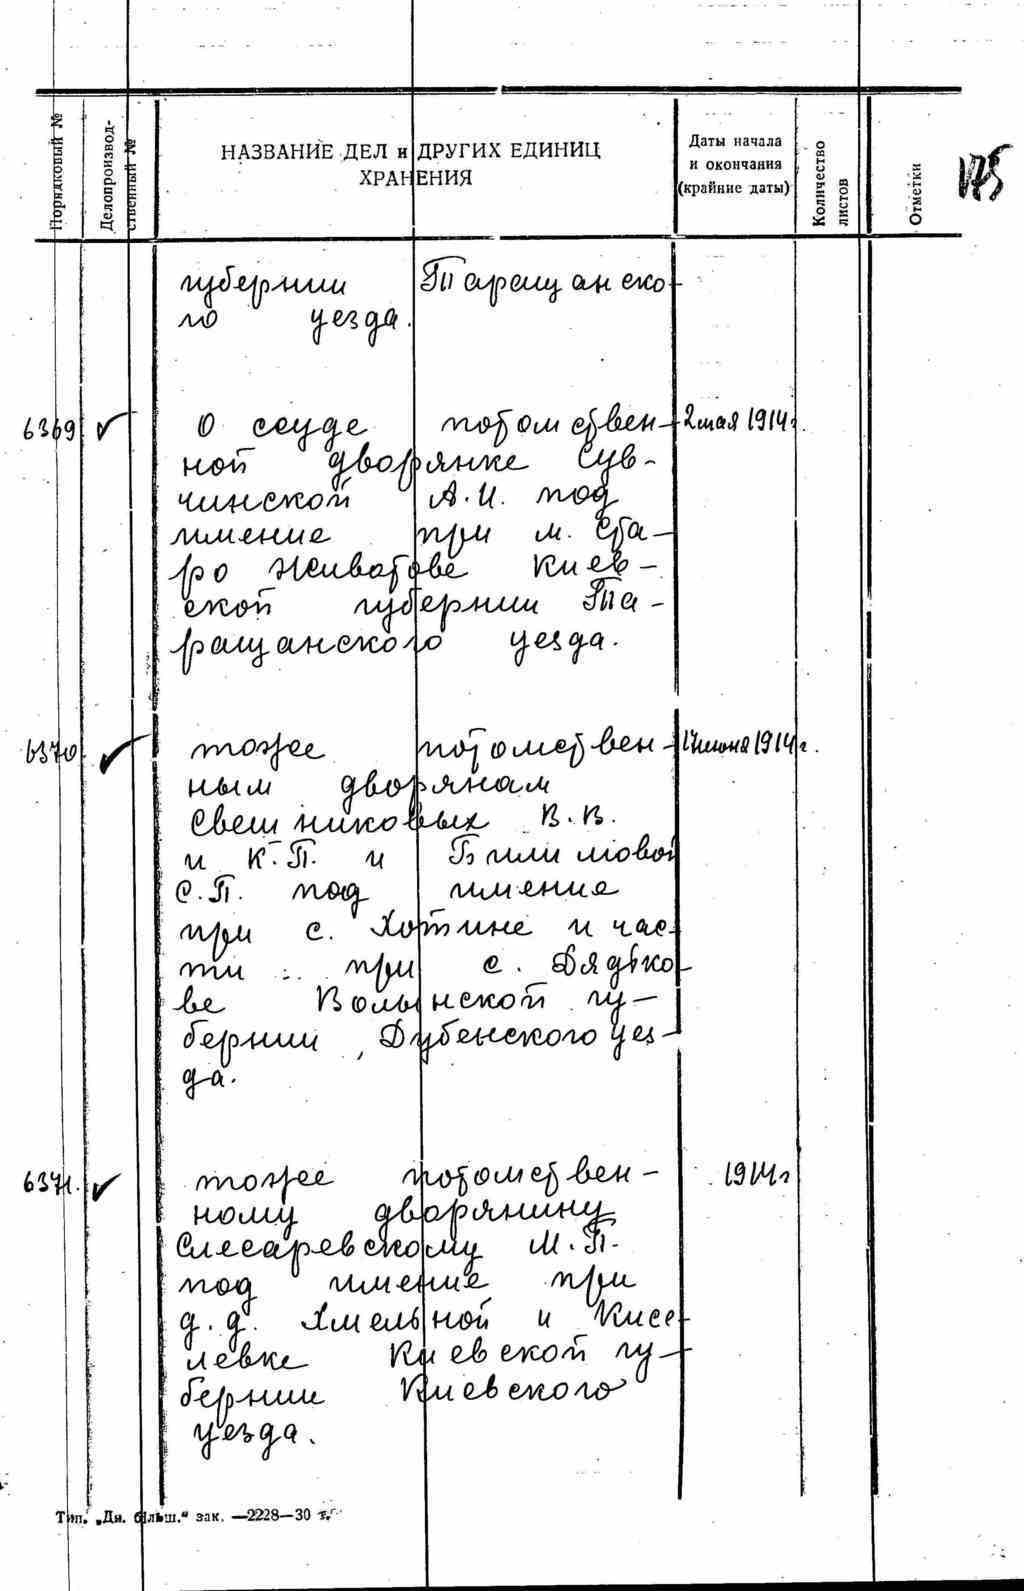 Порядковый №
Делопроизвод-
ственный №
НАЗВАНИЕ ДЕЛ и ДРУГИХ ЕДИНИЦ
ХРАНЕНИЯ
Даты начала
и окончания
(крайние даты)
Количество
листов
Отметки
175
губернии Таращанско-
го уезда.
6369 О ссуде потомствен- 2 мая 1914 г.
ной дворянке Сув-
чинской А.И. под
имение при м. Ста-
ро Животове Киев-
ской губернии Та-
ращанского уезда.
6370 тоже потомствен- июня 1914 г.
ным дворянам
Свешниковых В.В.
и К.П. и Билимовой
С.П. под имение
при с. Хотине и час-
ти при с. Дядько-
ве Волынской гу-
бернии, Дубенского уез-
да.
6371. тоже потомствен- 1914 г
ному дворянину
Слесаревскому М.П.
под имение при
д.д. Хмельной и Кисе-
левке Киевской гу-
бернии Киевского
уезда.
Тип. „Дн. більш.“ зак. —2228—30 т.